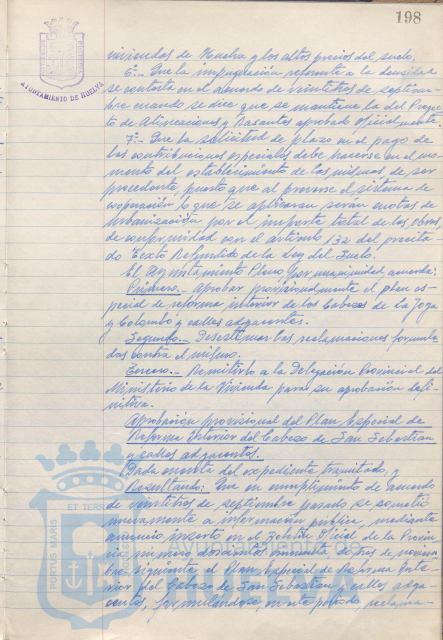 198
AYUNTAMIENTO DE HUELVA
viviendas de Huelva y los altos precios del suelo.
6º.- Que la impugnación referente a la densidad
se contesta en el acuerdo de veintitres de septiem-
bre cuando se dice que se mantiene la del Proyec-
to de Alineaciones y Rasantes aprobado oficialmente.
7º.- Que la solicitud de plazo en el pago de
las contribuciones especiales debe hacerse en el mo-
mento del establecimiento de las mismas, de ser
procedente, puesto que al preverse el sistema de
cooperación lo que se aplicaran serán cuotas de
urbanización por el importe total de las obras,
de conformidad con el artículo 132 del precita-
do Texto Refundido de la Ley del Suelo.
El Ayuntamiento Pleno, por unanimidad acuerda:
Primero.- Aprobar provisionalmente el plan es-
pecial de reforma interior de los Cabezos de la Joya
y Colombo y calles adyacentes.
Segundo.- Desestimar las reclamaciones formula-
das contra el mismo.
Tercero.- Remitirlo a la Delegación Provincial del
Ministerio de la Vivienda para su aprobación defi-
nitiva.
Aprobación provisional del Plan Especial de
Reforma Interior del Cabezo de San Sebastian
y calles adyacentes.
Dada cuenta del expediente tramitado, y
Resultando: Que en cumplimiento de acuerdo
de veintitres de septiembre pasado se sometió
nuevamente a información pública, mediante
anuncio inserto en el Boletín Oficial de la Provin-
cia, número doscientos cincuenta de tres de noviem-
bre siguiente el Plan Especial de Reforma Inte-
rior del Cabezo de San Sebastian y calles adya-
centes, formulandose, en este período, reclama-
PORTUS MARIS ET TERRAE